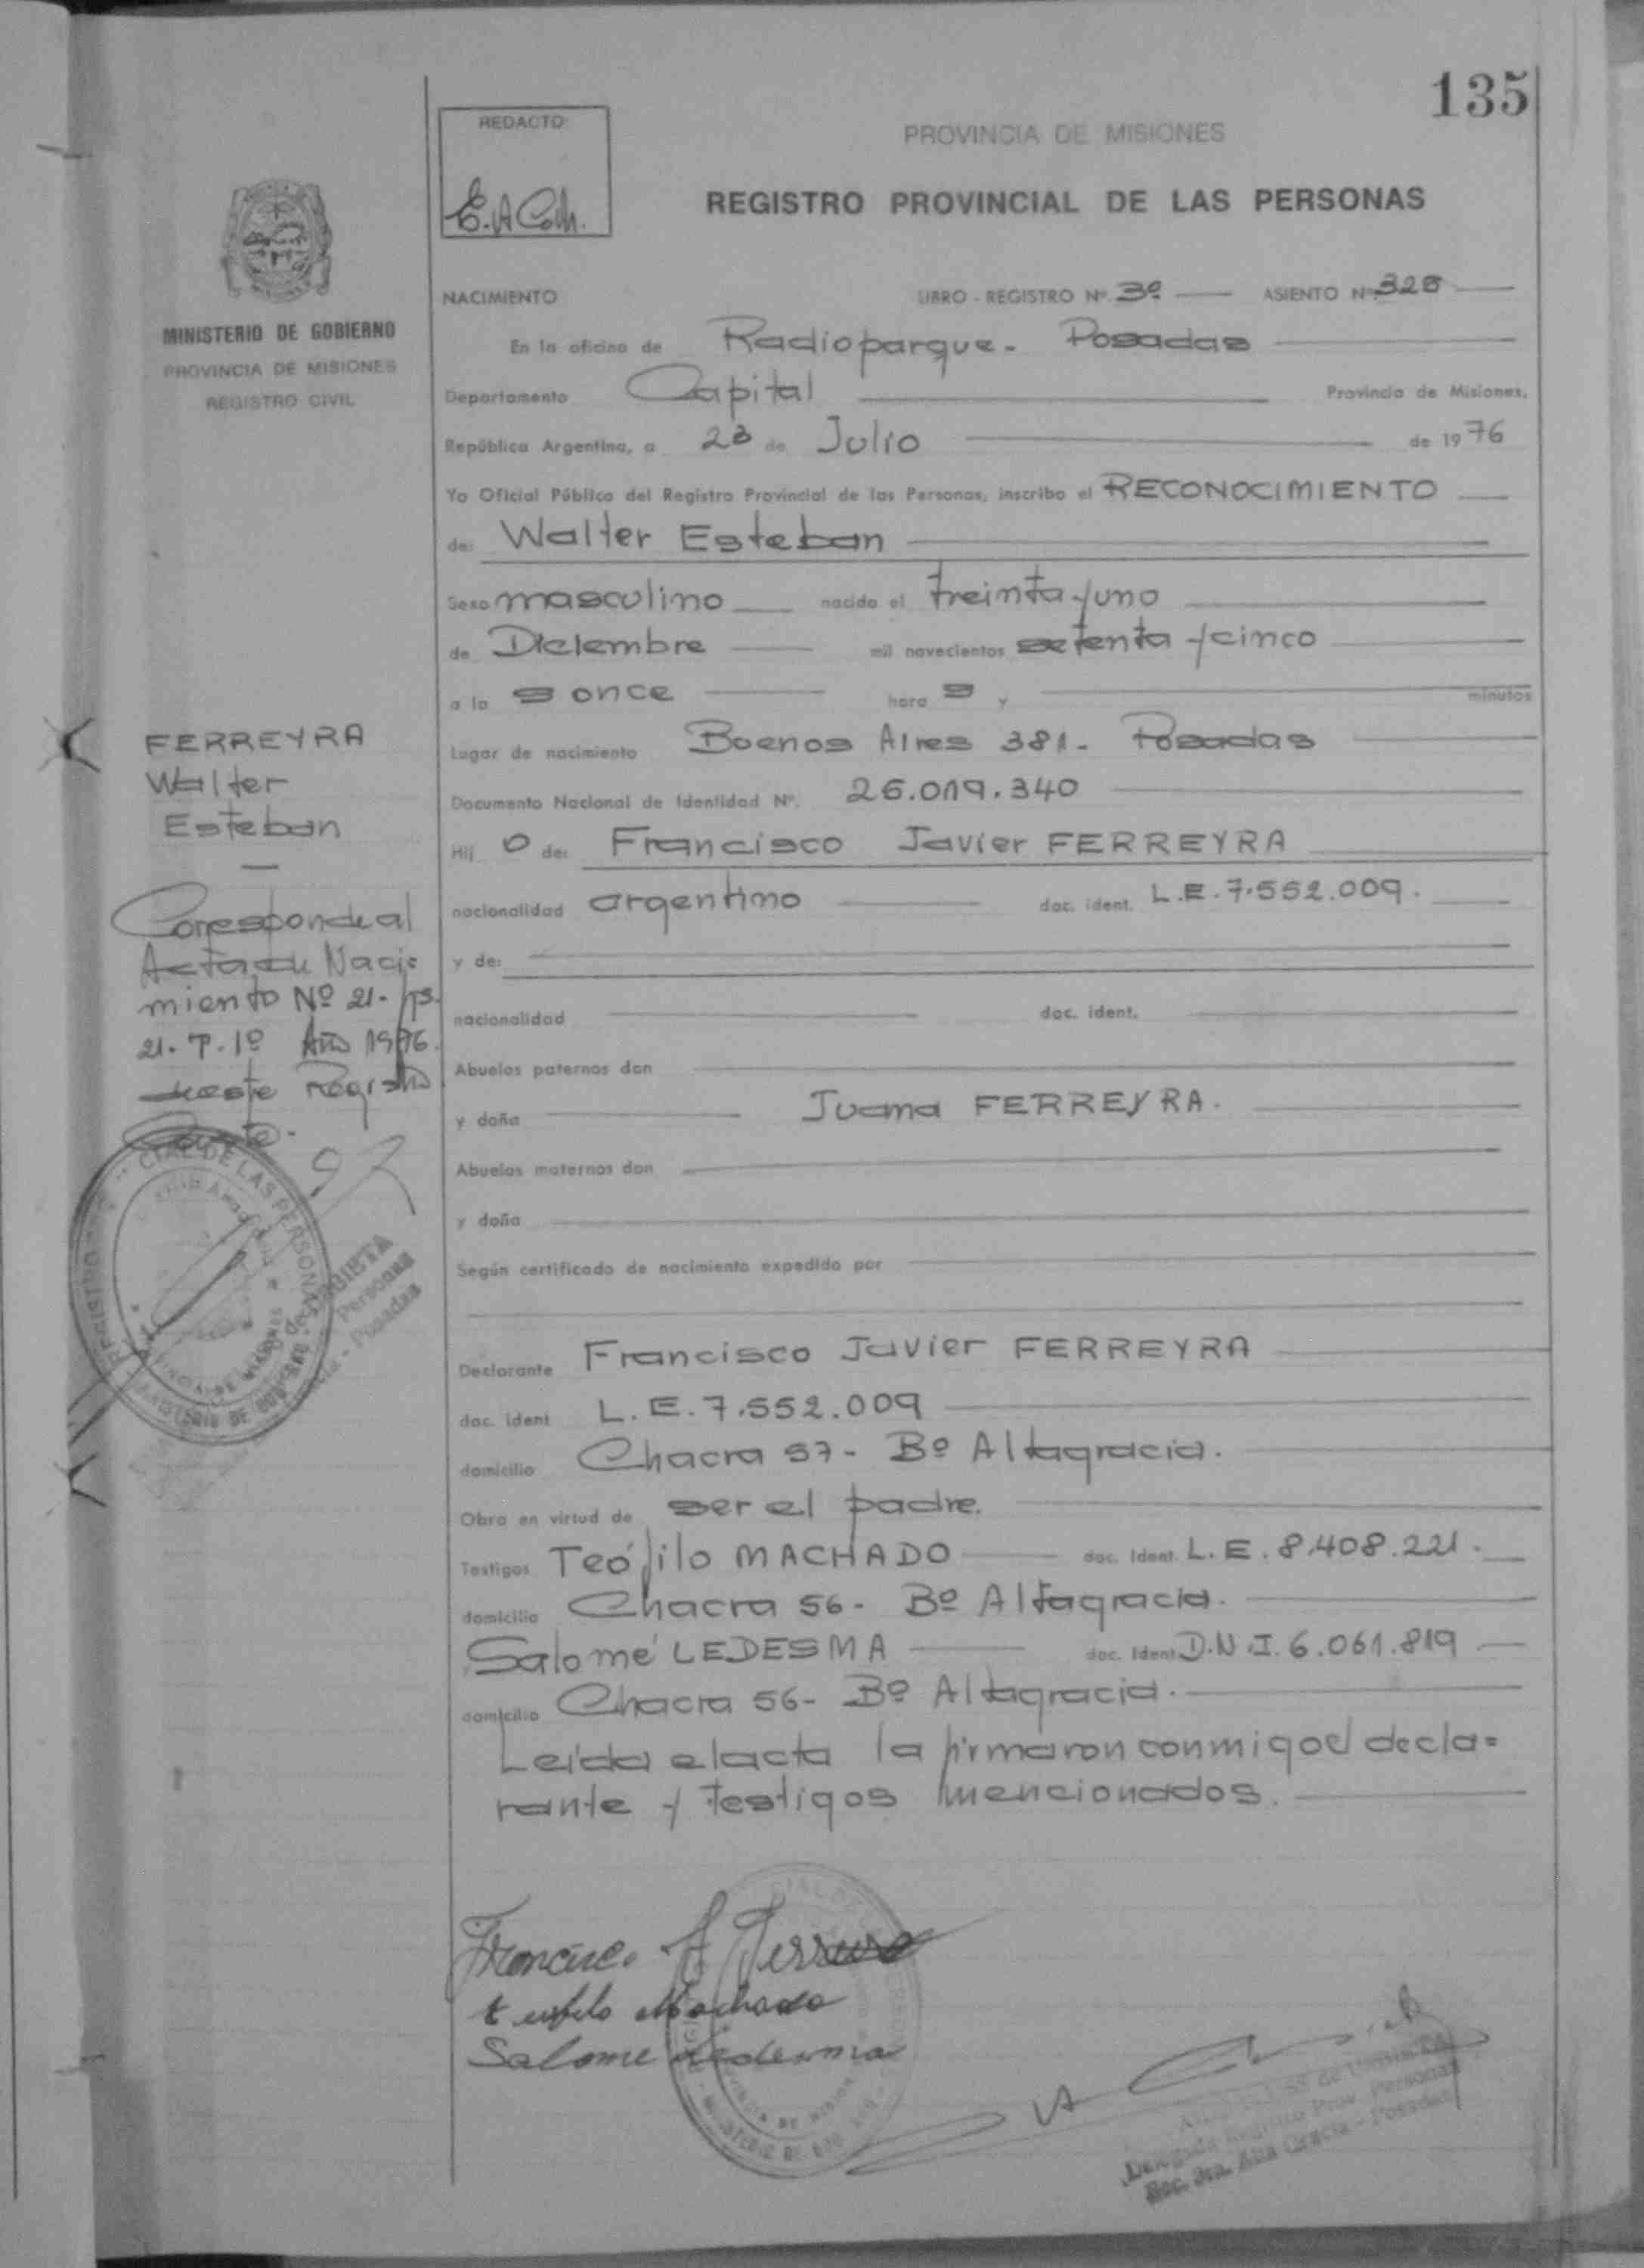 135
REDACTO:
PROVINCIA DE MISIONES
REGISTRO PROVINCIAL DE LAS PERSONAS
MINISTERIO DE GOBIERNO
PROVINCIA DE MISIONES
REGISTRO CIVIL
NACIMIENTO LIBRO - REGISTRO Nº. 3º ASIENTO Nº 328
En la oficina de Radioparque. Posadas
Departamento Capital Provincia de Misiones,
República Argentina, a 23 de Julio de 1976
Yo Oficial Público del Registro Provincial de las Personas, inscribo el RECONOCIMIENTO
de: Walter Esteban
Sexo masculino nacido el treinta y uno
de Diciembre mil novecientos setenta y cinco
a la s once hora s y minutos
Lugar de nacimiento Buenos Aires 381- Posadas
Documento Nacional de Identidad Nº. 26.019.340
Hij o de: Francisco Javier FERREYRA
nacionalidad argentino doc. ident. L.E. 7.552.009.
y de:
nacionalidad doc. ident.
Abuelos paternos don
y doña Juana FERREYRA.
Abuelos maternos don
y doña
Según certificado de nacimiento expedido por
Declarante Francisco Javier FERREYRA
doc. ident L.E. 7.552.009
domicilio Chacra 57- Bº Altagracia.
Obra en virtud de ser el padre.
Testigos Teófilo MACHADO doc. ident. L.E. 8.408.221.
domicilio Chacra 56- Bº Altagracia.
y Salomé LEDESMA doc. ident D.N.I. 6.061.819
domicilio Chacra 56- Bº Altagracia.
Leída el acta la firmaron conmigo el decla=
rante y testigos mencionados.
FERREYRA
Walter
Esteban
Corresponde al
Acta de Naci=
miento Nº 21- Fs.
21. T. 1º Año 1976.
de este Registro
Salome Ledesma